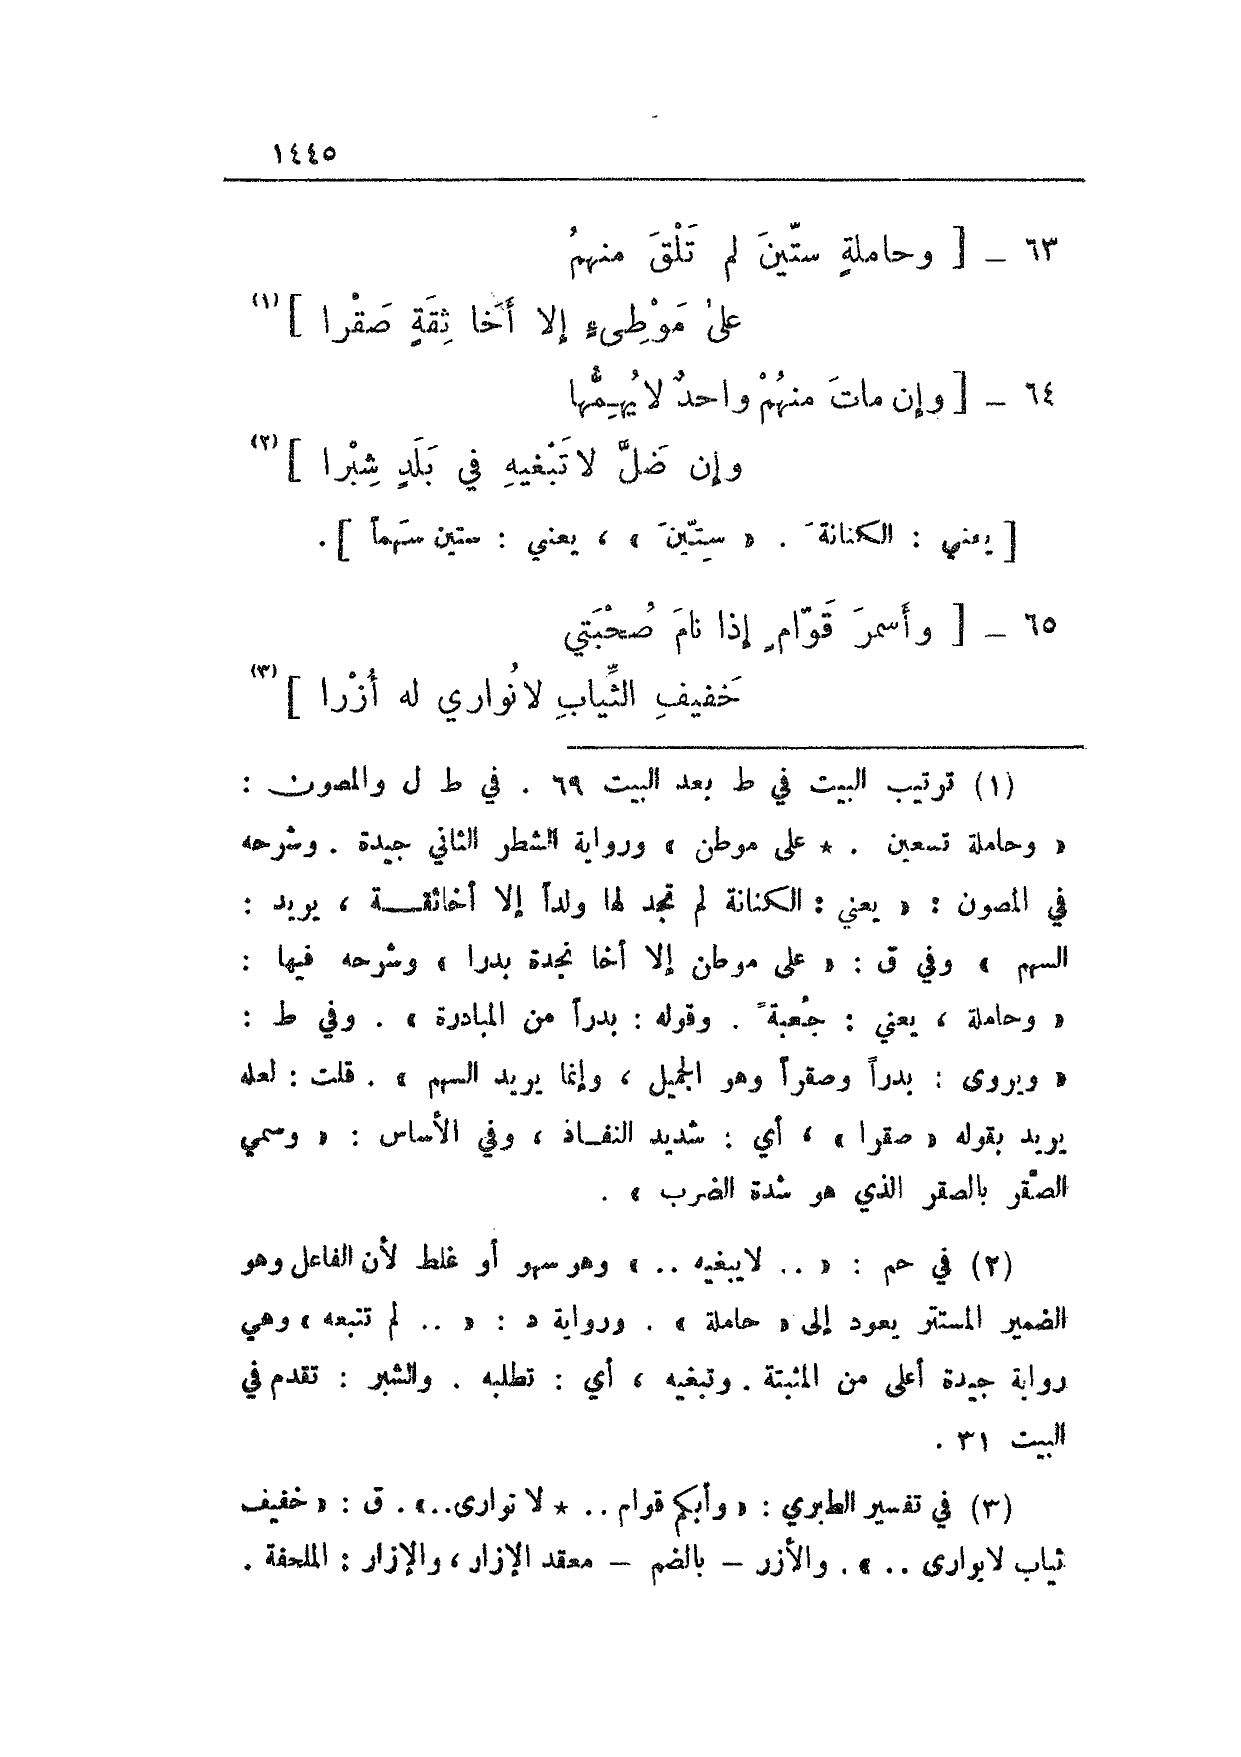 ١٤٤٥
٦٣ ــ [ وحاملةٍ ستّينَ لم تَلْقَ منهمُ
علىٰ مَوْطِىءٍ إلا أَخَا ثِقَةٍ صَقْرا ] (١)
٦٤ ــ [ وإن ماتَ منهُمْ واحدٌ لا يُهِمُّها
وإن ضَلَّ لا تَبْغيهِ في بَلَدٍ شِبْرا ] (٢)
[ يعني : الكنانةَ . « سِتّينَ » ، يعني : ستين سَهماً ] .
٦٥ ــ [ وأَسمرَ قَوّامٍ إذا نامَ صُحْبَتي
خَفيفِ الثِّيابِ لا نُواري له أُزْرا ] (٣)
(١) ترتيب البيت في ط بعد البيت ٦٩ . في ط ل والمصون :
« وحاملة تسعين . * على موطن » ورواية الشطر الثاني جيدة . وشرحه
في المصون : « يعني : الكنانة لم تجد لها ولداً إلا أخاثقــة ، يريد :
السهم » وفي ق : « على موطن إلا أخا نجدة بدرا » وشرحه فيها :
« وحاملة ، يعني : جُعبةً . وقوله : بدراً من المبادرة » . وفي ط :
« ويروى : بدراً وصقراً وهو الجميل ، وإنما يريد السهم » . قلت : لعله
يريد بقوله « صقرا » ، أي : شديد النفــاذ ، وفي الأساس : « وسمي
الصّقر بالصقر الذي هو شدة الضرب » .
(٢) في حم : « .. لايبغيه .. » وهو سهو أو غلط لأن الفاعل وهو
الضمير المستتر يعود إلى « حاملة » . ورواية د : « .. لم تتبعه » وهي
رواية جيدة أعلى من المثبتة . وتبغيه ، أي : تطلبه . والشبر : تقدم في
البيت ٣١ .
(٣) في تفسير الطبري : « وأبكم قوام .. * لا نوارى..» . ق : « خفيف
ثياب لايوارى .. » . والأزر – بالضم – معقد الإزار ، والإزار : الملحفة .